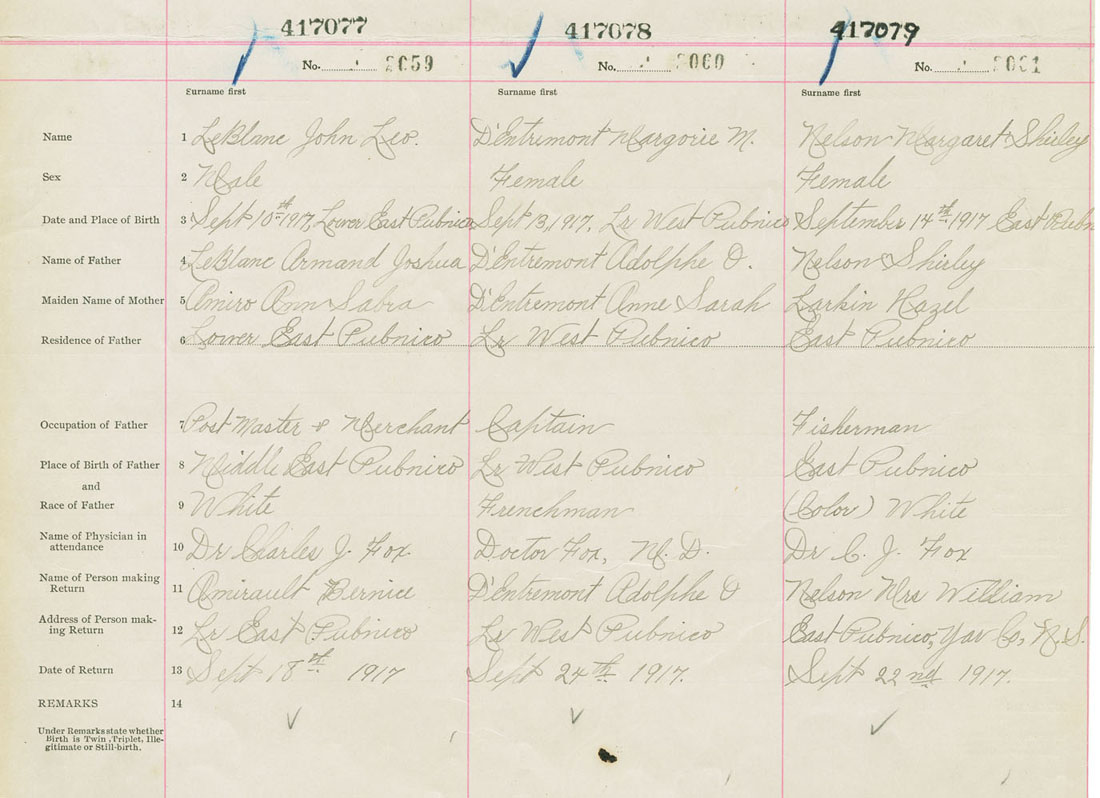 417077 417078 417079
No. 2059 No. 2060 No. 2061
Surname first Surname first Surname first
Name 1 LeBlanc John Leo. D'Entremont Margorie M. Nelson Margaret Shirley
Sex 2 Male Female Female
Date and Place of Birth 3 Sept 10th 1917, Lower East Pubnico Sept 13, 1917, Lr West Pubnico September 14th 1917 East Pubn
Name of Father 4 LeBlanc Armand Joshua D'Entremont Adolphe O. Nelson Shirley
Maiden Name of Mother 5 Amiro Ann Sabra D'Entremont Anne Sarah Larkin Hazel
Residence of Father 6 Lower East Pubnico Lr West Pubnico East Pubnico
Occupation of Father 7 Post Master & Merchant Captain Fisherman
Place of Birth of Father 8 Middle East Pubnico Lr West Pubnico East Pubnico
and
Race of Father 9 White Frenchman (Color) White
Name of Physician in
attendance 10 Dr Charles J. Fox. Doctor Fox, M. D. Dr C. J. Fox
Name of Person making
Return 11 Amirault Bernice D'Entremont Adolphe O Nelson Mrs William
Address of Person mak-
ing Return 12 Lr East Pubnico Lr West Pubnico East Pubnico, Yar Co, N. S.
Date of Return 13 Sept 18th 1917 Sept 24th 1917. Sept 22nd 1917.
REMARKS 14
Under Remarks state whether
Birth is Twin, Triplet, Ille-
gitimate or Still-birth.